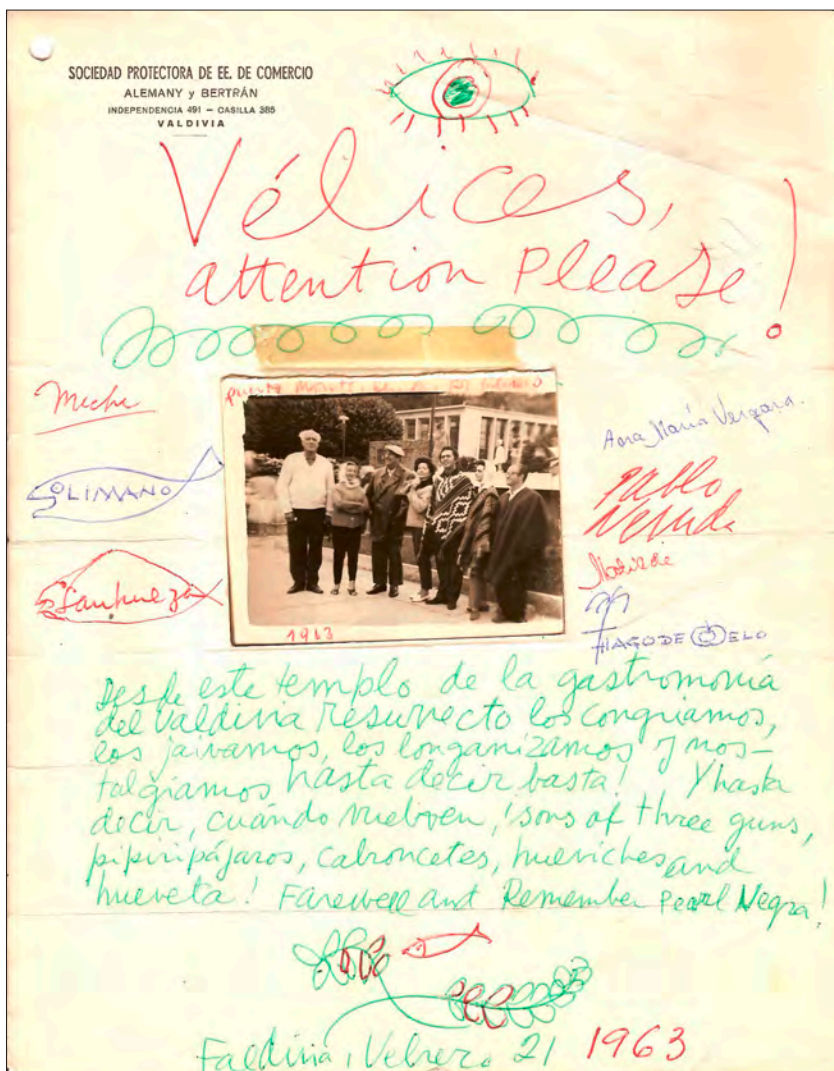 SOCIEDAD PROTECTORA DE EE. DE COMERCIO
ALEMANY y BERTRÁN
INDEPENDENCIA 491 – CASILLA 385
VALDIVIA
Vélices,
attention Please!
Puerto Montt
Meche
SOLIMANO
Sanhueza
Ana María Vergara.
Pablo
Neruda
Matilde
THIAGO DE MELO
1963
Desde este templo de la gastronomía
del Valdivia resurrecto los congriamos,
los jaivamos, los longanizamos y nos-
talgiamos hasta decir basta! Y hasta
decir, cuándo vuelven, sons of three guns,
pipiripájaros, cabroncetes, hueviches and
hueveta! Farewell and Remember Pearl Negra!
Faldivia, Vebrero 21 1963